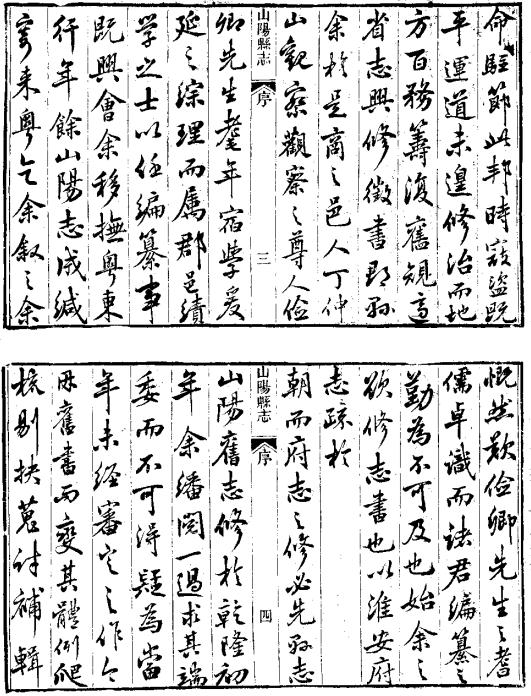 命駐節此邦時寇盜既
平運道未遑修治而地
方百務籌復舊規適
省志興修徵書郡縣
余於是商之邑人丁仲
山觀察觀察之尊人儉
山陽縣志 序 三
卿先生耄年宿學爰
延之綜理而屬郡邑績
學之士以任編纂事
既興會余移撫粤東
行年餘山陽志成緘
寄來粤乞余叙之余
慨然歎儉卿先生之耆
儒卓識而諸君編纂之
勤為不可及也始余之
欲修志書也以淮安府
志疏於
朝而府志之修必先縣志
山陽縣志 序 四
山陽舊志修於乾隆初
年余繙閱一過求其端
委而不可得疑為當
年未經審定之作今
舊書而變其體例爬
梳剔抉蒐討補輯